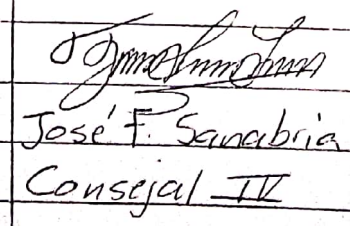 José F. Sanabria
Consejal IV